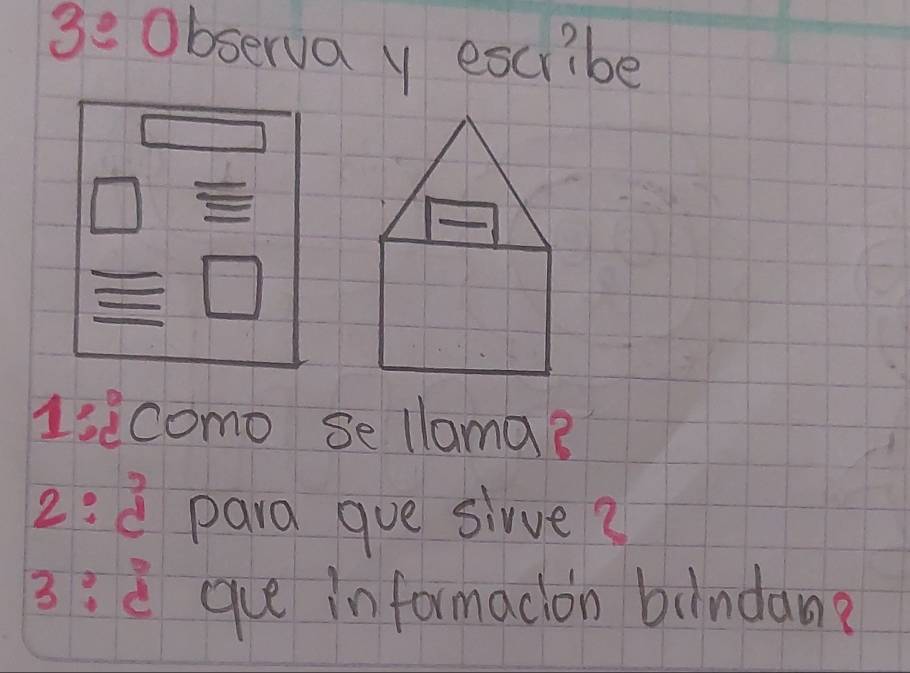 3: Observa y escribe
1: ¿como se llama?
2: ¿ para que sirve?
3: ¿ que información brindan?